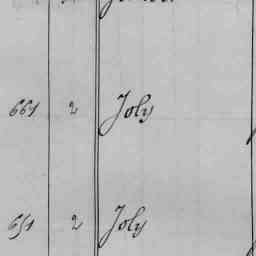 661 2 Joly
651 2 Joly